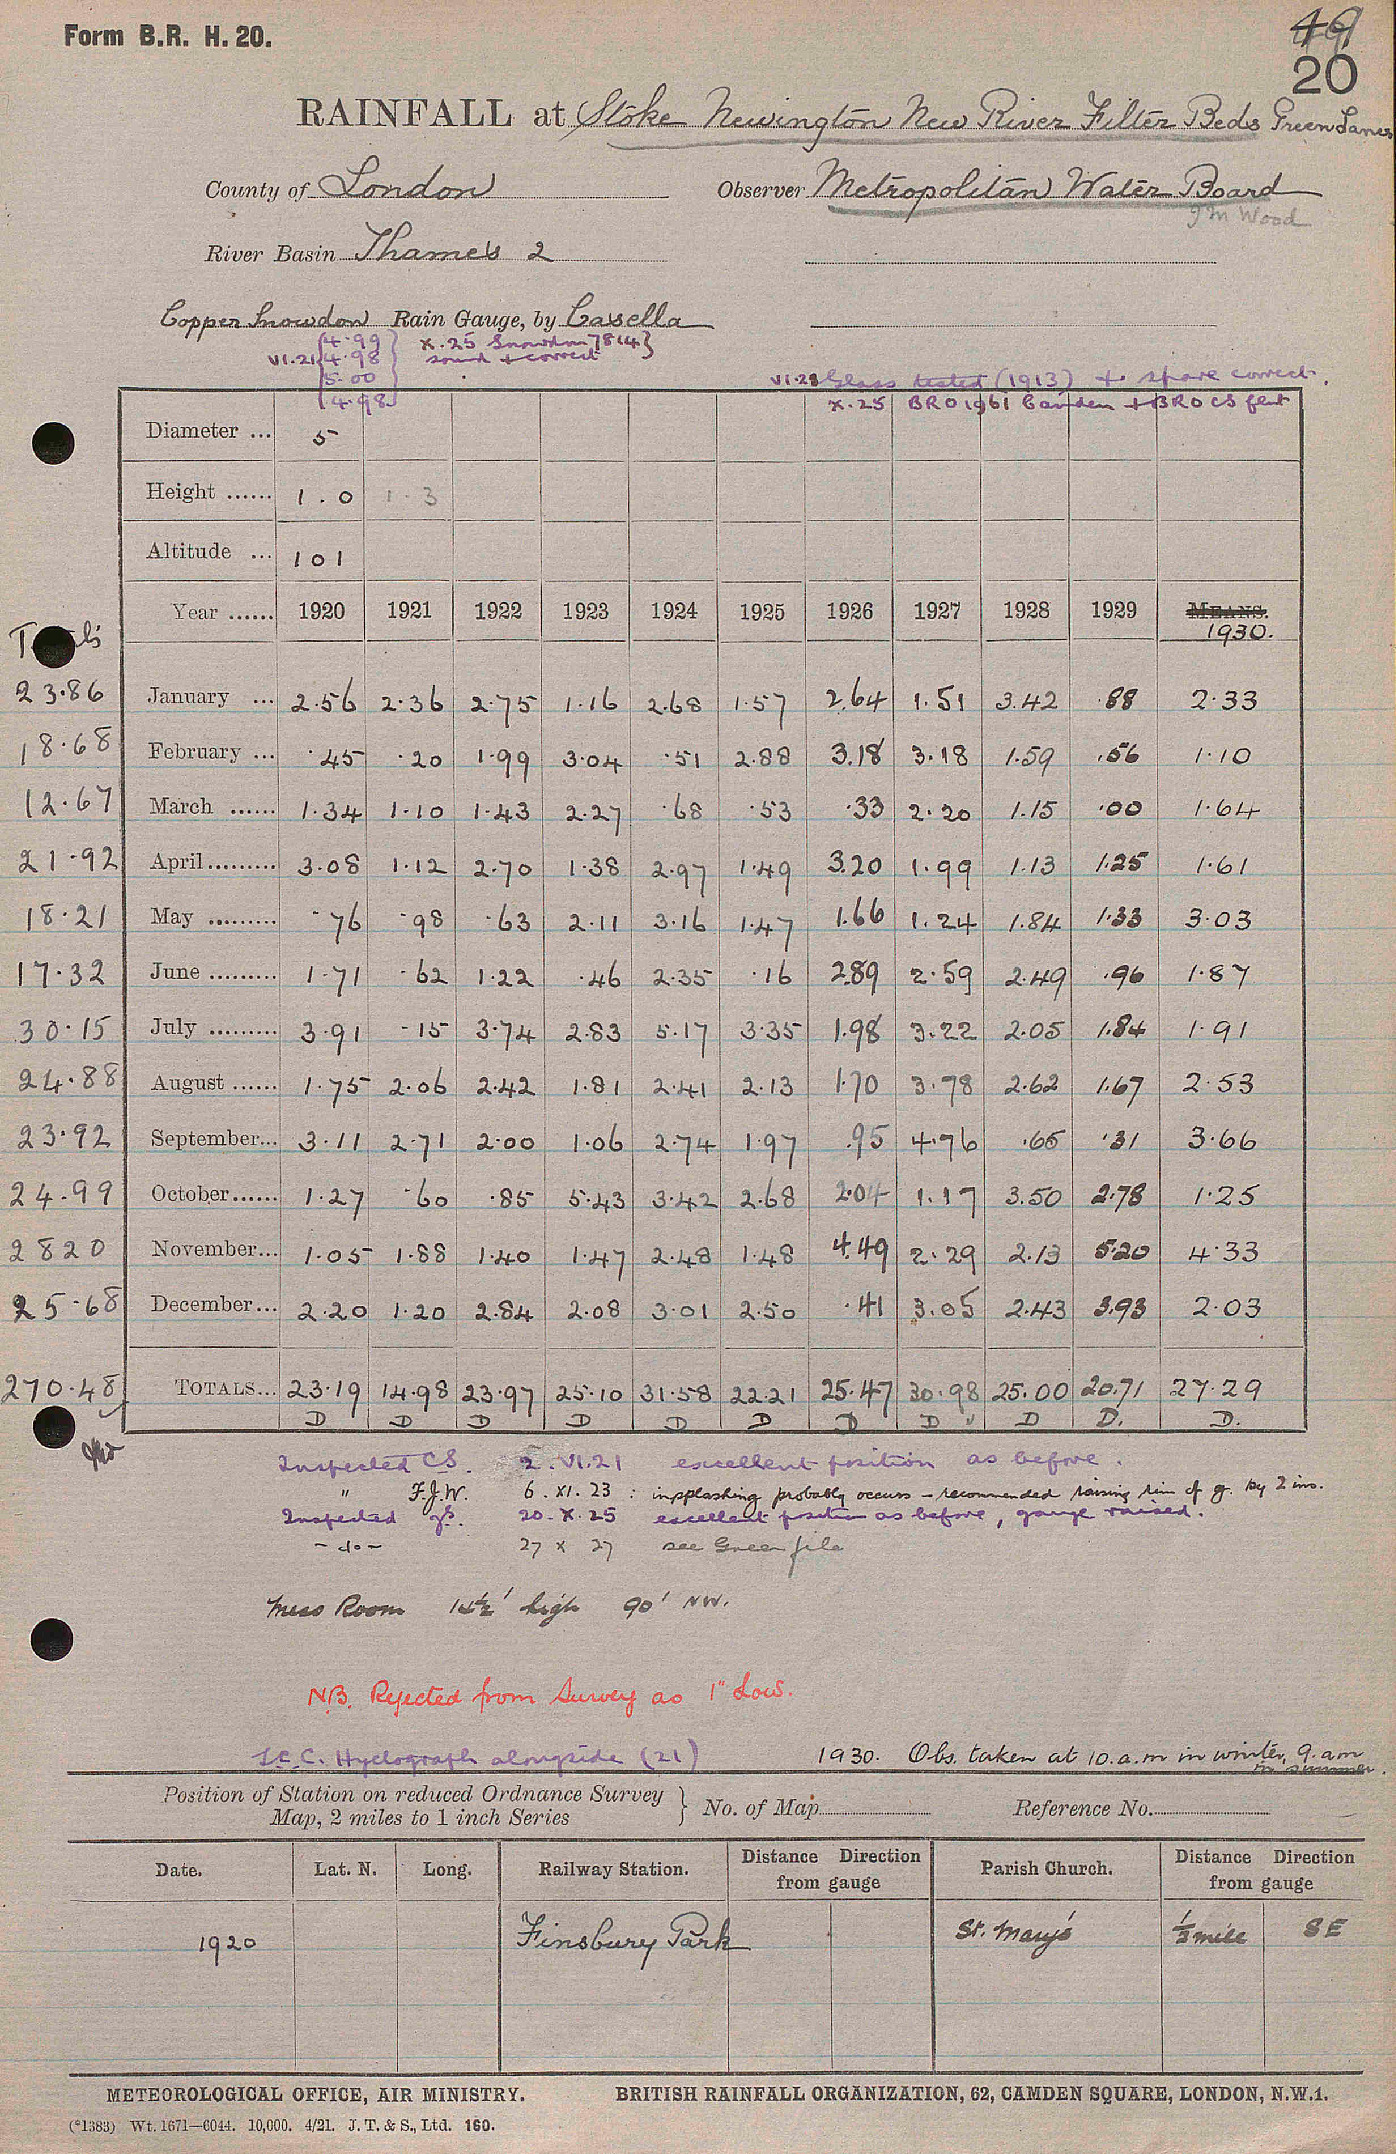 Form B.R. H. 20.
49
20
RAINFALL at Stoke Newington New River Filter Beds Green Lanes
County of London Observer Metropolitan Water Board
J M Wood
River Basin Thames 2
Copper Snowdon Rain Gauge, by Casella
VI.21 {4.99 4.98 5.00 4.98} X.25 Snowdon 7814} sound + correct
VI.21 Glass tested (1913) + spare correct.
X.25 BRO 1961 Camden + BRO CS
Diameter ... 5
Height ...... 1.0 1.3
Altitude ... 101
Year ...... 1920 1921 1922 1923 1924 1925 1926 1927 1928 1929 MEANS. 1930.
23.86 January ... 2.56 2.36 2.75 1.16 2.68 1.57 2.64 1.51 3.42 .88 2.33
18.68 February ... .45 .20 1.99 3.04 .51 2.88 3.18 3.18 1.59 .56 1.10
12.67 March ...... 1.34 1.10 1.43 2.27 .68 .53 .33 2.20 1.15 .00 1.64
21.92 April ......... 3.08 1.12 2.70 1.38 2.97 1.49 3.20 1.99 1.13 1.25 1.61
18.21 May ......... .76 .98 .63 2.11 3.16 1.47 1.66 1.24 1.84 1.33 3.03
17.32 June ......... 1.71 .62 1.22 .46 2.35 .16 2.89 2.59 2.49 .96 1.87
30.15 July ......... 3.91 .15 3.74 2.83 5.17 3.35 1.98 3.22 2.05 1.84 1.91
24.88 August ...... 1.75 2.06 2.42 1.81 2.41 2.13 1.70 3.78 2.62 1.67 2.53
23.92 September... 3.11 2.71 2.00 1.06 2.74 1.97 .95 4.76 .65 .31 3.66
24.99 October...... 1.27 .60 .85 5.43 3.42 2.68 2.04 1.17 3.50 2.78 1.25
28 20 November... 1.05 1.88 1.40 1.47 2.48 1.48 4.49 2.29 2.13 5.20 4.33
25.68 December... 2.20 1.20 2.84 2.08 3.01 2.50 .41 3.05 2.43 3.93 2.03
270.48 TOTALS... 23.19 14.98 23.97 25.10 31.58 22.21 25.47 30.98 25.00 20.71 27.29
D D D D D D D D " D D. D.
Inspected CS. 2.VI.21 excellent position as before.
" F.J.W. 6.XI.23: insplashing probably occurs - recommended raising rim of g. by 2 ins.
Inspected 20.X.25 excellent position as before, gauge raised.
-do- 27 X 27 see Green file
Mess Room 14½' high 90' NW.
N.B. Rejected from Survey as 1" Low.
L.C.C. Hyetograph alongside (21) 1930. Obs. taken at 10.a.m in winter, 9.am in summer.
Position of Station on reduced Ordnance Survey Map, 2 miles to 1 inch Series } No. of Map Reference No.
Date. Lat. N. Long. Railway Station. Distance Direction from gauge Parish Church. Distance Direction from gauge
1920 Finsbury Park St. Mary's ½ mile SE
METEOROLOGICAL OFFICE, AIR MINISTRY. BRITISH RAINFALL ORGANIZATION, 62, CAMDEN SQUARE, LONDON, N.W.1.
(*1383) Wt. 1671—6044. 10,000. 4/21. J. T. & S., Ltd. 160.